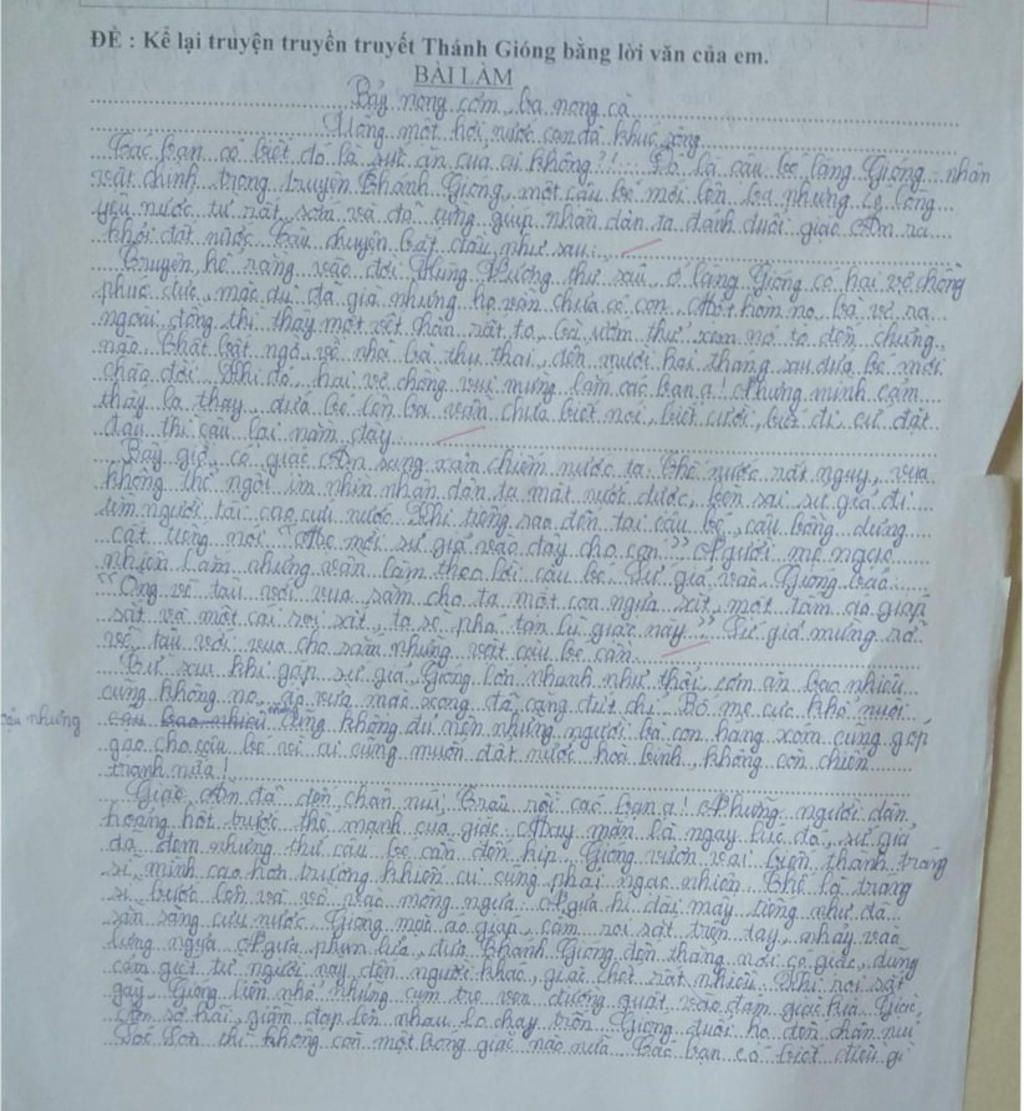 ĐỀ : Kể lại truyện truyền truyết Thánh Gióng bằng lời văn của em.
BÀI LÀM
Bảy nong cơm, ba nong cà
Uống một hơi nước cạn đà khúc sông
Các bạn có biết đó là sức ăn của ai không?! Đó là cậu bé làng Gióng - nhân
vật chính trong truyện Thánh Gióng, một cậu bé mới lên ba nhưng có lòng
yêu nước từ rất sớm và đã cùng giúp nhân dân ta đánh đuổi giặc Ân ra
khỏi đất nước. Câu chuyện bắt đầu như sau:
Truyện kể rằng vào đời Hùng Vương thứ sáu, ở làng Gióng có hai vợ chồng
phúc đức, mặc dù đã già nhưng họ vẫn chưa có con. Một hôm nọ, bà vợ ra
ngoài đồng thì thấy một vết chân rất to, bà ướm thử xem nó to đến chừng
nào. Thật bất ngờ, về nhà bà thụ thai, đến mười hai tháng sau đứa bé mới
chào đời. Khi đó, hai vợ chồng vui mừng lắm các bạn ạ! Nhưng mình cảm
thấy lạ thay, đứa bé lên ba vẫn chưa biết nói, biết cười, biết đi, cứ đặt
đâu thì cậu lại nằm đấy.
Bấy giờ, có giặc Ân sang xâm chiếm nước ta. Thế nước rất nguy, vua
không thể ngồi im nhìn nhân dân ta mất nước được, bèn sai sứ giả đi
tìm người tài cao cứu nước. Khi tiếng rao đến tai cậu bé, cậu bỗng dưng
cất tiếng nói: "Mẹ mời sứ giả vào đây cho con!" Người mẹ ngạc
nhiên lắm nhưng vẫn làm theo lời cậu bé. Sứ giả vào, Gióng bảo:
"Ông về tâu với vua, sắm cho ta một con ngựa sắt, một tấm áo giáp
sắt và một cái roi sắt, ta sẽ phá tan lũ giặc này." Sứ giả mừng rỡ
về tâu với vua cho sắm những vật cậu bé cần.
Từ sau khi gặp sứ giả, Gióng lớn nhanh như thổi, cơm ăn bao nhiêu
cũng không no, áo vừa mặc xong đã căng đứt chỉ. Bố mẹ cực khổ nuôi
cậu nhưng cũng không đủ nên những người bà con hàng xóm cũng góp
gạo cho cậu bé nơi ai cũng muốn đất nước hoà bình, không còn chiến
tranh nữa!
Giặc Ân đã đến chân núi Trâu rồi các bạn ạ! Những người dân
hoảng hốt trước thế mạnh của giặc. May mắn là ngay lúc đó, sứ giả
đã đem những thứ cậu bé cần đến kịp. Gióng vươn vai biến thành tráng
sĩ, mình cao hơn trượng khiến ai cũng phải ngạc nhiên. Thế là tráng
sĩ bước lên và vỗ vào mông ngựa. Ngựa hí dài mấy tiếng như đã
sẵn sàng cứu nước. Gióng mặc áo giáp, cầm roi sắt trên tay, nhảy vào
lưng ngựa. Ngựa phun lửa, đưa Thánh Gióng đến thẳng nơi có giặc, dũng
cảm giết từ người này đến người khác, giặc chết rất nhiều. Khi roi sắt
gãy, Gióng liền nhổ những cụm tre ven đường quật vào đám giặc kia. Giặc
Ân sợ hãi, giẫm đạp lên nhau lo chạy trốn. Gióng đuổi họ đến chân núi
Sóc Sơn thì không còn một bóng giặc nào nữa. Các bạn có biết điều gì